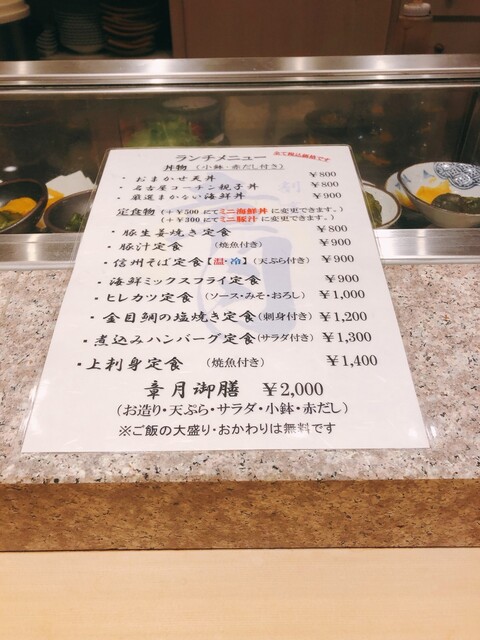 ランチメニュー
全て税込価格です
丼物 (小鉢・赤だし付き)
・おまかせ天丼 ¥800
・名古屋コーチン親子丼 ¥800
・厳選まかない海鮮丼 ¥900
定食物 (+¥500にてミニ海鮮丼に変更できます。)
(+¥300にてミニ豚汁に変更できます。)
・豚生姜焼き定食 ¥800
・豚汁定食 (焼魚付き) ¥900
・信州そば定食【温・冷】(天ぷら付き) ¥900
・海鮮ミックスフライ定食 ¥900
・ヒレカツ定食 (ソース・みそ・おろし) ¥1,000
・金目鯛の塩焼き定食(刺身付き) ¥1,200
・煮込みハンバーグ定食(サラダ付き) ¥1,300
・上刺身定食 (焼魚付き) ¥1,400
章月御膳 ¥2,000
(お造り・天ぷら・サラダ・小鉢・赤だし)
※ご飯の大盛り・おかわりは無料です